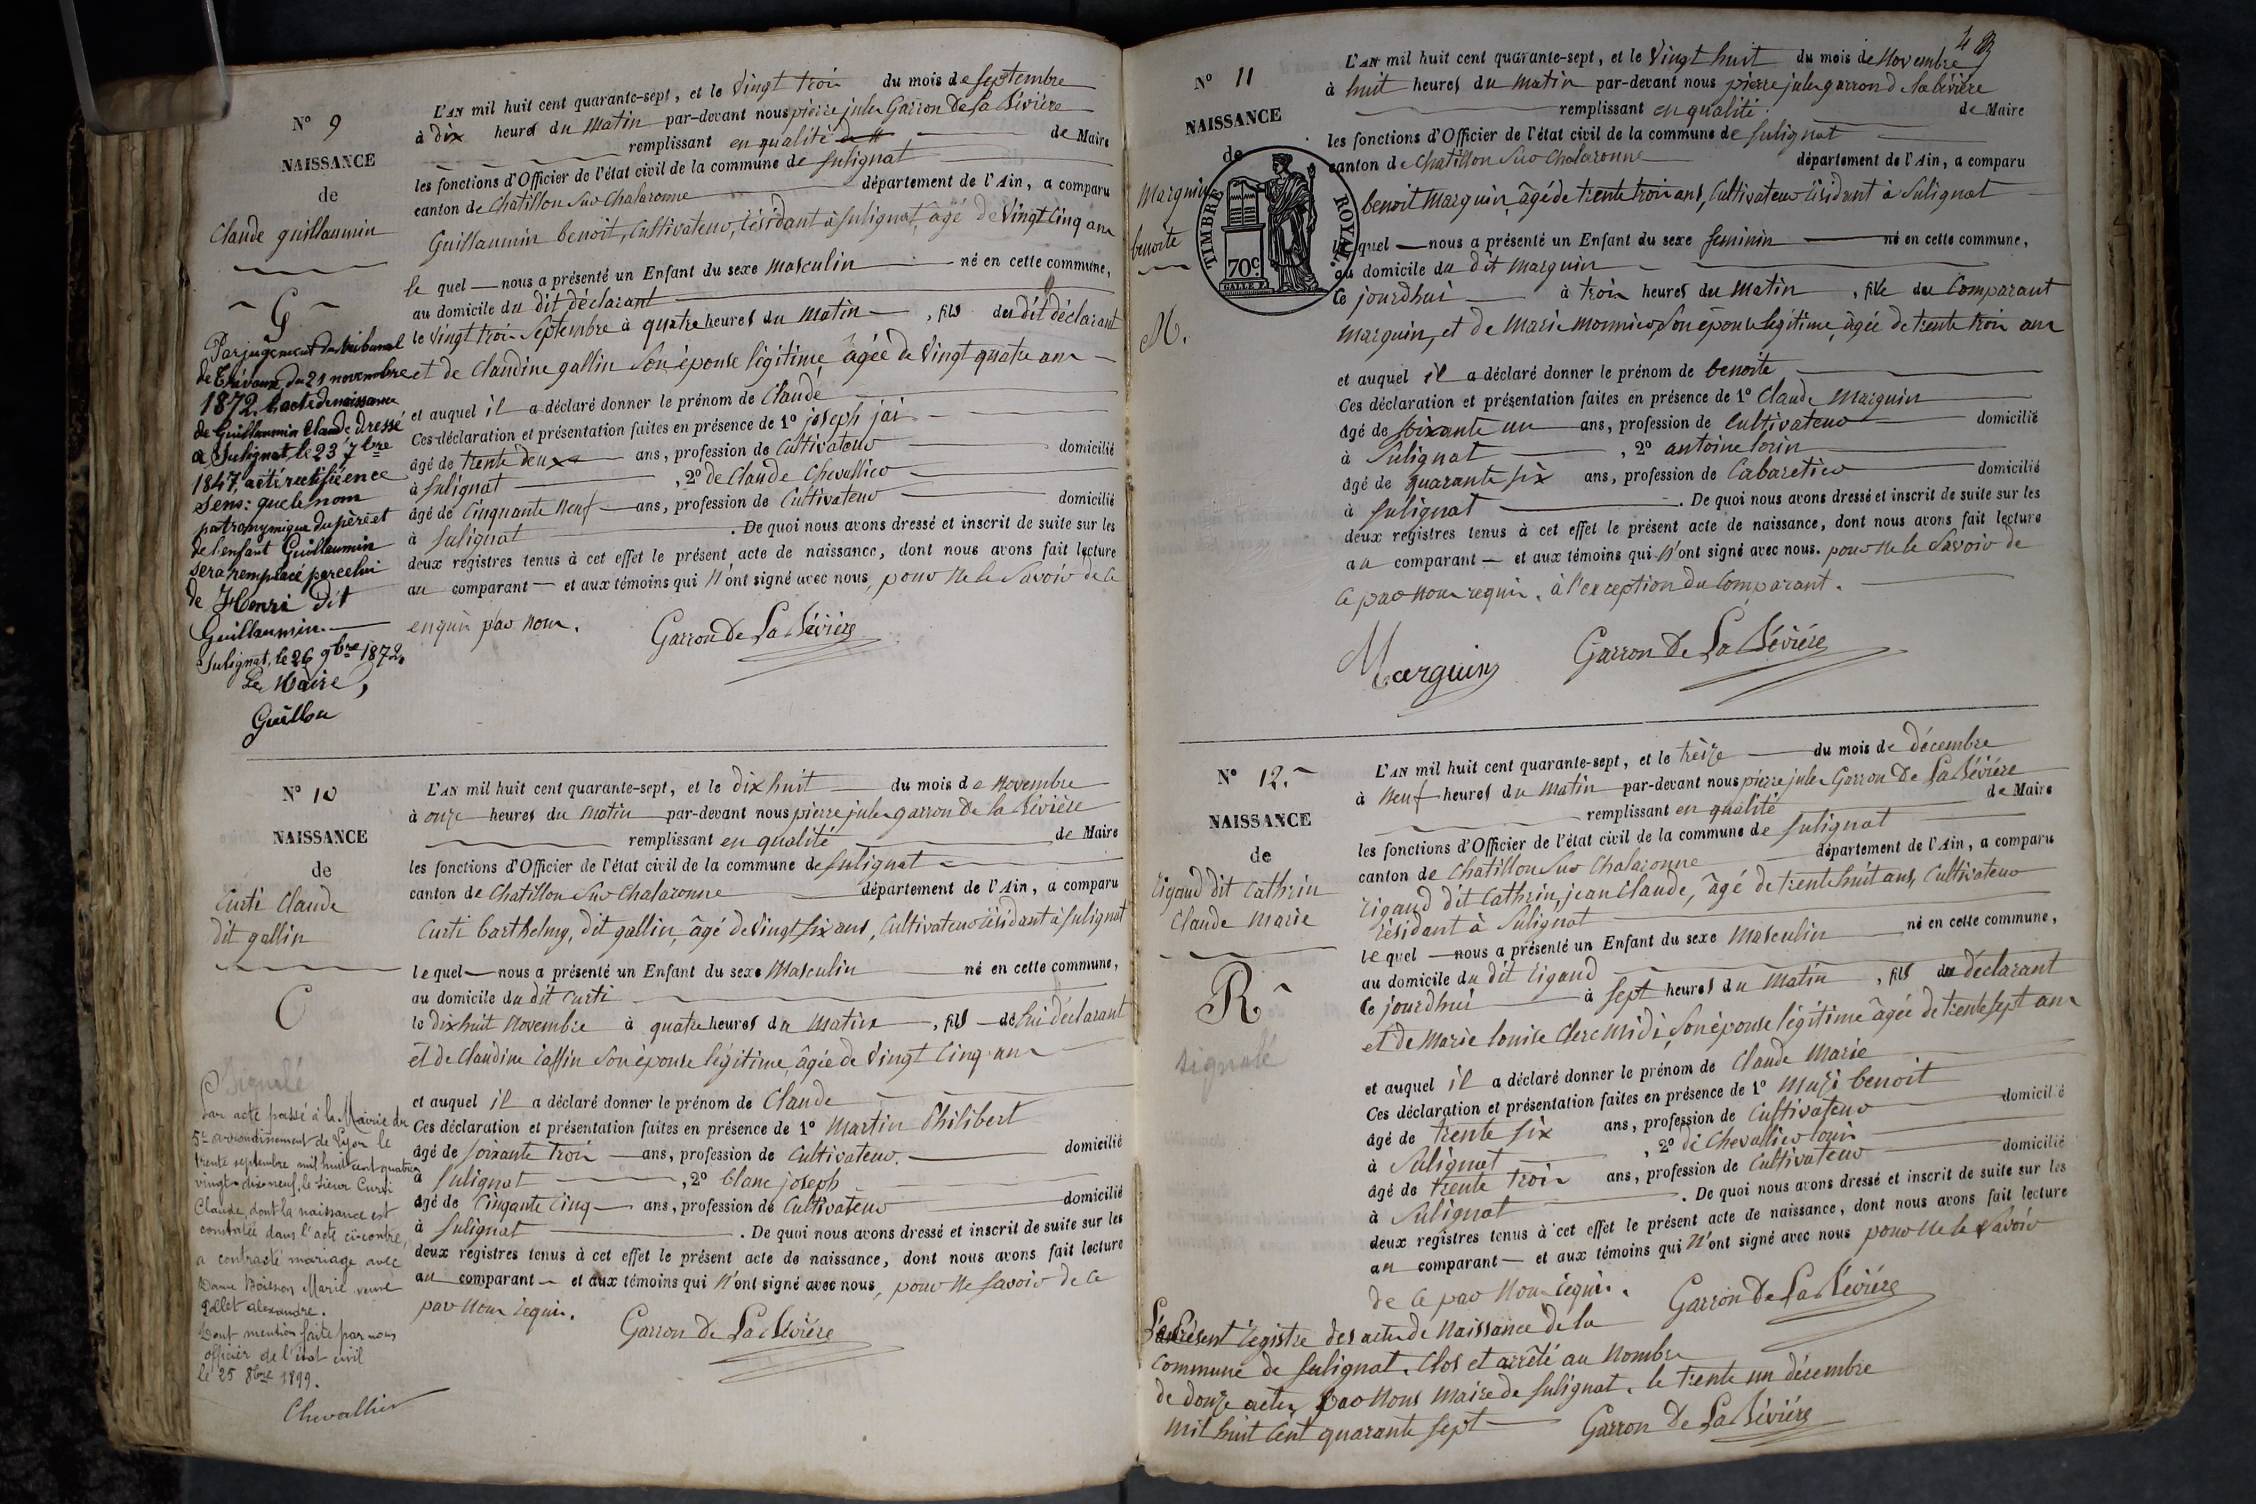 N° 9
NAISSANCE
de
Claude guillaumin
G
Par jugement du tribunal
de Trévoux, du 21 novembre
1872, l'acte de naissance
de Guillaumin Claude dressé
à Sulignat, le 23 7bre
1847, a été rectifié en ce
sens: que le nom
patronymique du père et
de l'enfant Guillaumin
sera remplacé par celui
de Henri dit
Guillaumin.
Sulignat, le 26 9bre 1872.
Le Maire,
Guillon
L'AN mil huit cent quarante-sept, et le vingt trois du mois de septembre
à dix heures du matin par-devant nous pierre jules Garron De la Bévière
remplissant en qualité de Maire
les fonctions d'Officier de l'état civil de la commune de Sulignat
canton de Chatillon sur Chalaronne département de l'Ain, a comparu
Guillaumin benoit, Cultivateur, résidant à Sulignat, âgé de vingt cinq ans
le quel nous a présenté un Enfant du sexe masculin né en cette commune,
au domicile du dit déclarant
le vingt trois septembre à quatre heures du matin, fils du dit déclarant
et de Claudine gallin son épouse légitime, âgée de vingt quatre ans
et auquel il a déclaré donner le prénom de Claude
Ces déclaration et présentation faites en présence de 1° joseph jai
âgé de trente deux ans, profession de Cultivateur domicilié
à Sulignat, 2° de Claude Chevallier
âgé de cinquante neuf ans, profession de Cultivateur domicilié
à Sulignat. De quoi nous avons dressé et inscrit de suite sur les
deux registres tenus à cet effet le présent acte de naissance, dont nous avons fait lecture
au comparant et aux témoins qui n'ont signé avec nous, pour ne le savoir de ce
enquis par nous.
Garron De La Bévière
N° 10
NAISSANCE
de
Curti Claude
dit gallin
C
Signalé
Par acte passé à la Mairie du
5e arrondissement de Lyon le
trente septembre mil huit cent quatre
vingt-dix-neuf, le sieur Curti
Claude, dont la naissance est
constatée dans l'acte ci-contre,
a contracté mariage avec
Dame Boisson Marie veuve
Pollet alexandre.
Dont mention faite par nous
officier de l'état civil
le 25 8bre 1899.
Chevallier
L'AN mil huit cent quarante-sept, et le dix huit du mois de Novembre
à onze heures du matin par-devant nous pierre jules garron De la Bévière
remplissant en qualité de Maire
les fonctions d'Officier de l'état civil de la commune de Sulignat
canton de Chatillon sur Chalaronne département de l'Ain, a comparu
Curti barthelmy, dit gallin, âgé de vingt six ans, Cultivateur résidant à Sulignat
le quel nous a présenté un Enfant du sexe masculin né en cette commune,
au domicile du dit curti
le dix huit Novembre à quatre heures du matin, fils de lui déclarant
et de Claudine son épouse légitime, âgée de vingt cinq ans
et auquel il a déclaré donner le prénom de Claude
Ces déclaration et présentation faites en présence de 1° Martin Philibert
âgé de soixante trois ans, profession de Cultivateur. domicilié
à Sulignat, 2° Blanc joseph
âgé de cinqante cinq ans, profession de Cultivateur domicilié
à Sulignat. De quoi nous avons dressé et inscrit de suite sur les
deux registres tenus à cet effet le présent acte de naissance, dont nous avons fait lecture
au comparant et aux témoins qui n'ont signé avec nous, pour ne savoir de ce
par nous requis.
Garron De La Bévière
N° 11
NAISSANCE
de
Marguin
benoite
M.
TIMBRE ROYAL.
70c.
L'AN mil huit cent quarante-sept, et le vingt huit du mois de Novembre
à huit heures du matin par-devant nous pierre jules garron De la bévière
remplissant en qualité de Maire
les fonctions d'Officier de l'état civil de la commune de Sulignat
canton de Chatillon sur Chalaronne département de l'Ain, a comparu
benoit Marguin, âgé de trente trois ans, Cultivateur résidant à Sulignat
le quel nous a présenté un Enfant du sexe feminin né en cette commune,
au domicile du dit marguin
ce jourdhui à trois heures du matin, fille du Comparant
marguin, et de marie monnier, son épouse légitime, âgée de trente trois ans
et auquel il a déclaré donner le prénom de benoite
Ces déclaration et présentation faites en présence de 1° Claude Marguin
âgé de soixante un ans, profession de Cultivateur domicilié
à Sulignat, 2° antoine lorin
âgé de quarante six ans, profession de Cabaretier domicilié
à Sulignat. De quoi nous avons dressé et inscrit de suite sur les
deux registres tenus à cet effet le présent acte de naissance, dont nous avons fait lecture
au comparant et aux témoins qui n'ont signé avec nous. pour ne le savoir de
ce par nous requis, à l'exception du Comparant.
Marguin
Garron De La Bévière
N° 12.
NAISSANCE
de
rigaud dit Cathrin
Claude Marie
R
signalé
L'AN mil huit cent quarante-sept, et le treize du mois de décembre
à neuf heures du matin par-devant nous pierre jules Garron De La Bévière
remplissant en qualité de Maire
les fonctions d'Officier de l'état civil de la commune de Sulignat
canton de Chatillon sur Chalaronne département de l'Ain, a comparu
rigaud dit Cathrin, jean Claude, âgé de trente huit ans, Cultivateur
résidant à Sulignat
le quel nous a présenté un Enfant du sexe masculin né en cette commune,
au domicile du dit rigaud
ce jourdhui à sept heures du matin, fils du déclarant
et de Marie louise Clermidi, son épouse légitime âgée de trente sept ans
et auquel il a déclaré donner le prénom de Claude Marie
Ces déclaration et présentation faites en présence de 1° benoit
âgé de trente six ans, profession de Cultivateur domicilié
à Sulignat, 2° de Chevallier louis
âgé de trente trois ans, profession de Cultivateur domicilié
à Sulignat. De quoi nous avons dressé et inscrit de suite sur les
deux registres tenus à cet effet le présent acte de naissance, dont nous avons fait lecture
au comparant et aux témoins qui n'ont signé avec nous pour ne le savoir
de ce par nous requis.
Garron De La Bévière
Le Présent registre des actes de Naissance de la
commune de Sulignat, Clos et arrêté au nombre
de douze actes, par nous maire de Sulignat, le trente un décembre
mil huit cent quarante sept
Garron De La Bévière